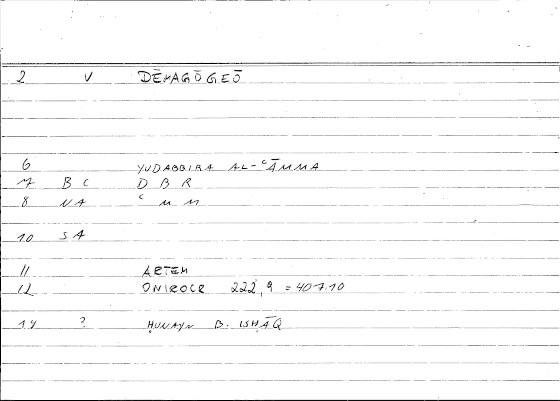 2 V DĒMAGŌGEŌ
6 YUDABBIRA AL-ʿĀMMA
7 BC DBR
8 NA ʿMM
10 SA
11 ARTEM
12 ONIROCR 222,9 = 407.10
14 ? ḤUNAYN B. ISḤĀQ